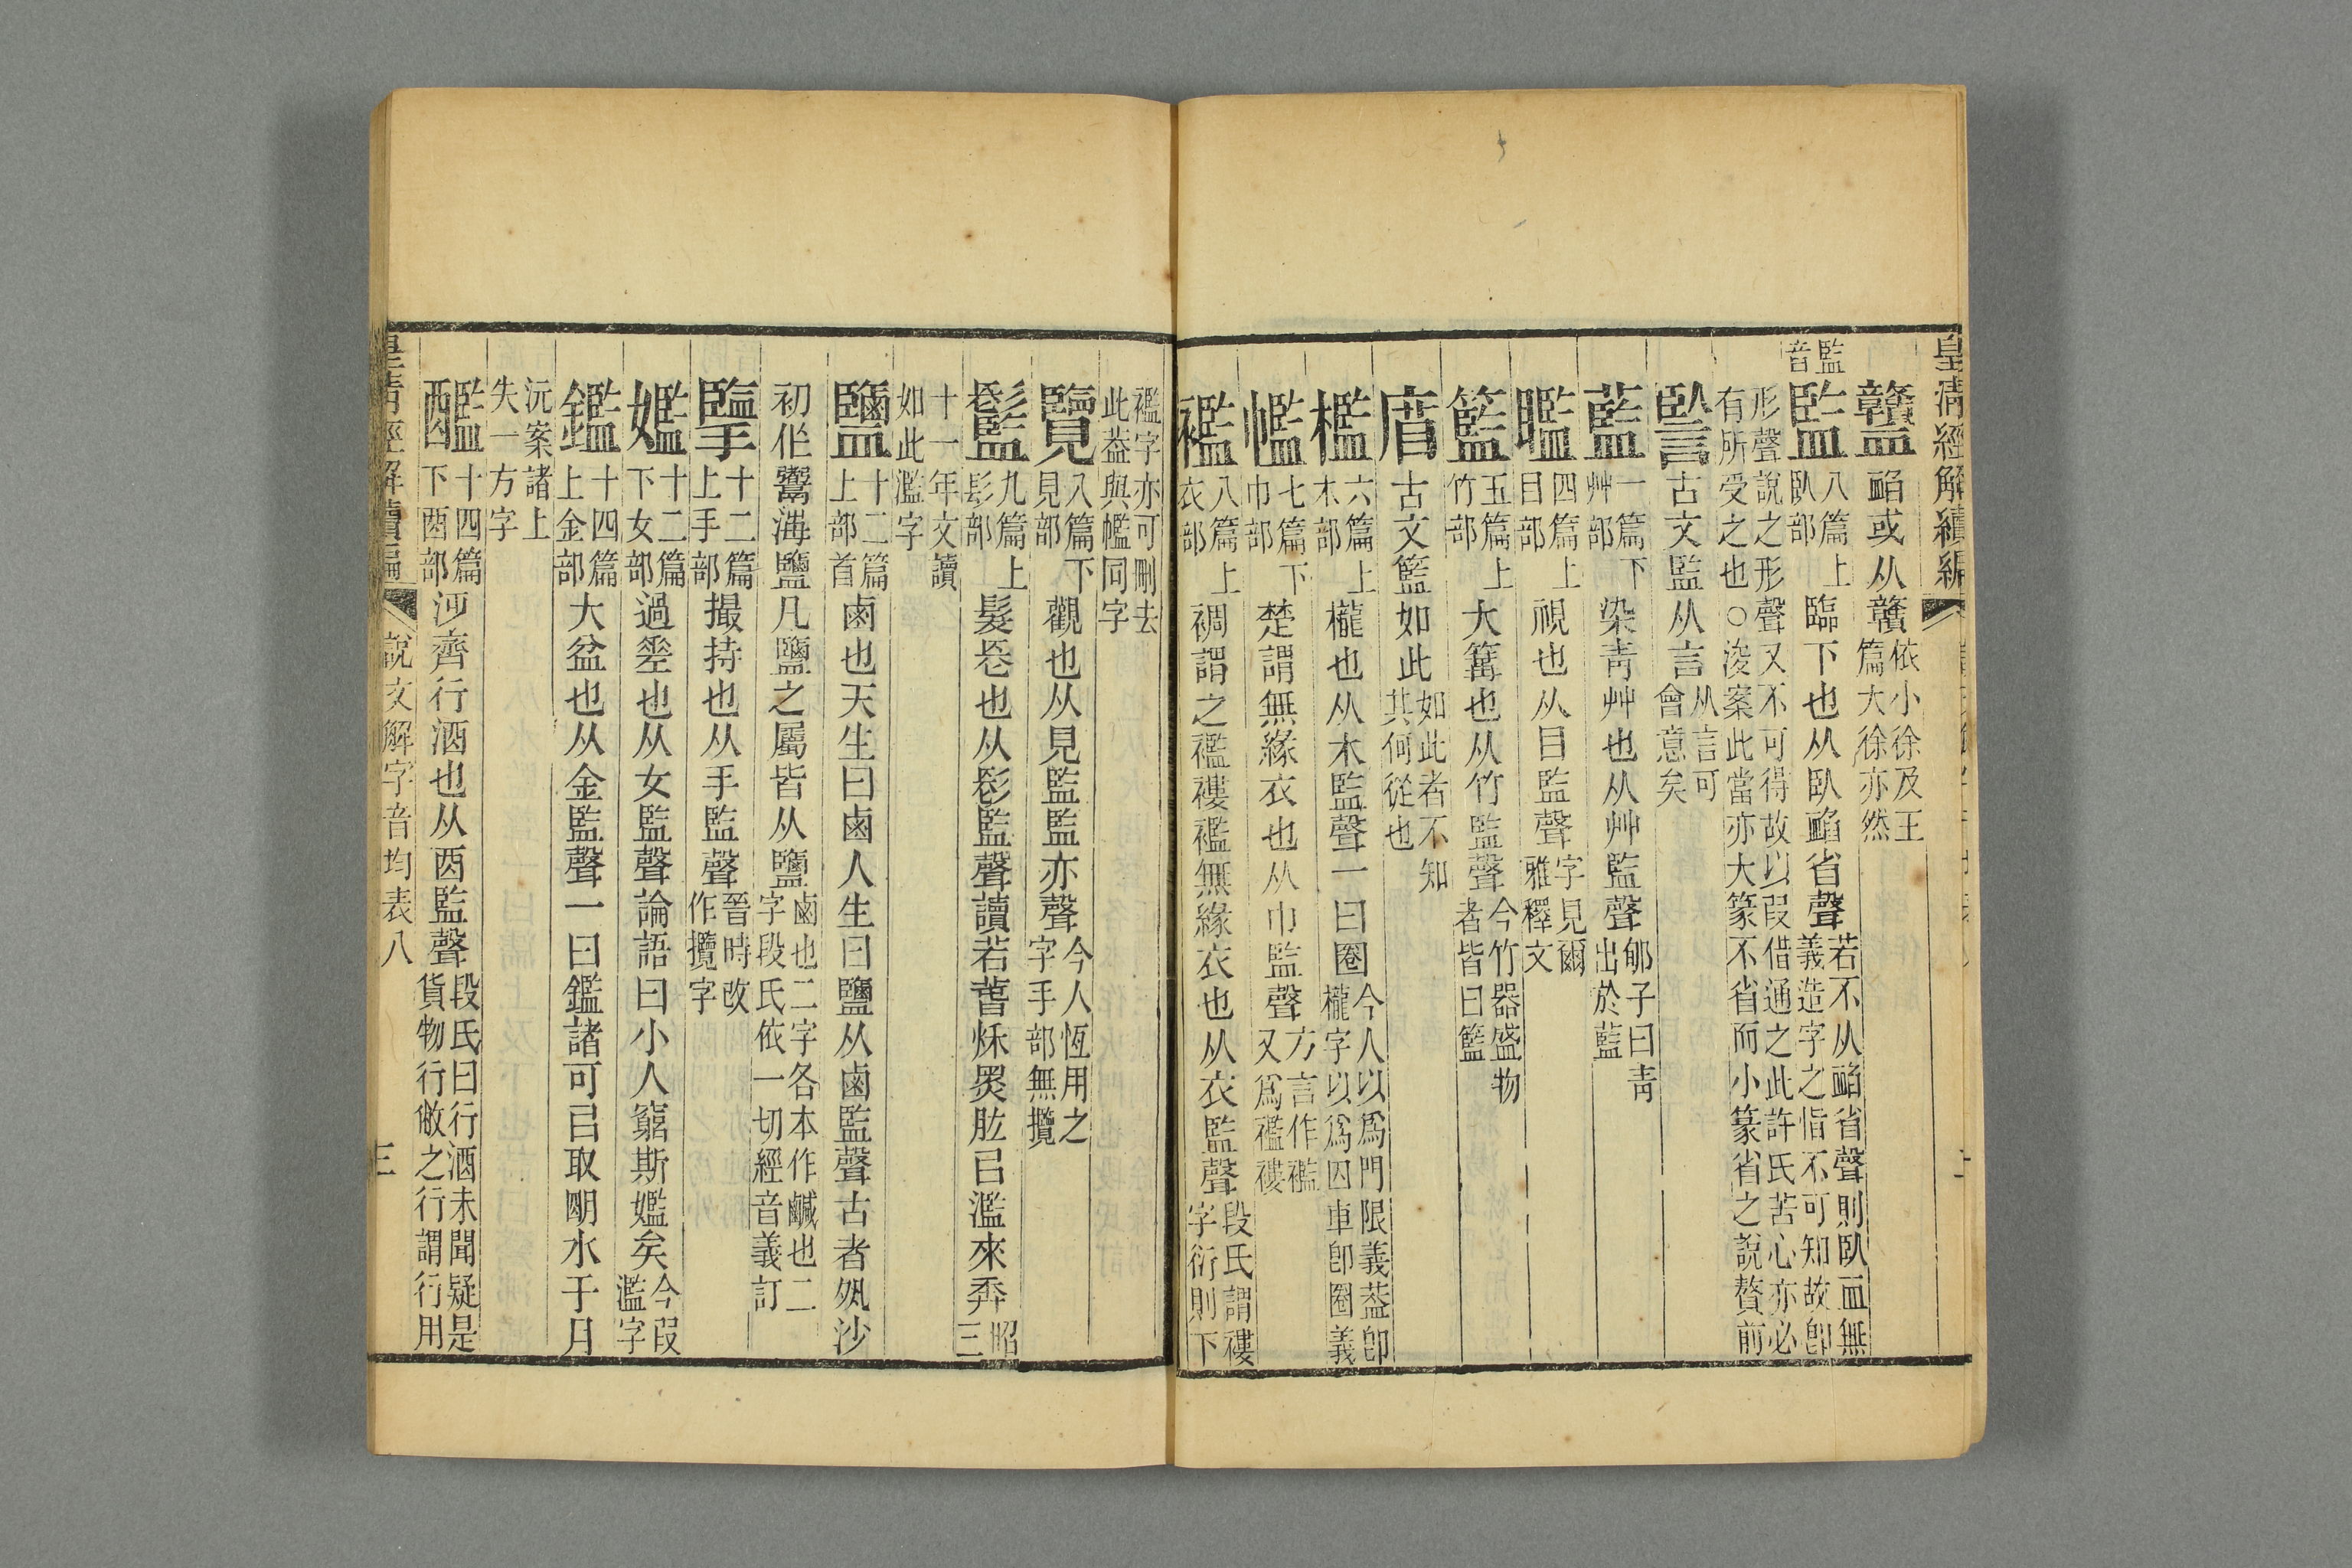 皇清經解續編
贛䀋或从贛依小徐及王篇大徐亦然
監音
監八篇上臥部臨下也从臥䘓省聲若不从䘓省聲則臥血無義造字之恉不可知故卽
形聲說之形聲又不可得故以叚借通之此許氏苦心亦必有所受之也○浚案此當亦大篆不省而小篆省之說贅前
𧨯古文監从言从言可會意矣
藍一篇下艸部染靑艸也从艸監聲郇子曰靑出於藍
矙四篇上目部視也从目監聲字見爾雅釋文
籃五篇上竹部大篝也从竹監聲今竹器盛物者皆曰籃
𥴧古文籃如此如此者不知其何從也
檻六篇上木部櫳也从木監聲一曰圈今人以爲門限義葢卽櫳字以爲囚車卽圈義
㡮七篇下巾部楚謂無緣衣也从巾監聲方言作襤又爲襤褸
襤八篇上衣部裯謂之襤褸襤無緣衣也从衣監聲段氏謂褸字衍則下
襤字亦可刪去此葢與㡮同字
覽八篇下見部觀也从見監監亦聲今人恆用之字手部無攬
鬛九篇上髟部髮也从髟監聲讀若昭三
十一年文讀如此濫字
鹽十二篇上部首鹵也天生曰鹵人生曰鹽从鹵監聲古者夙沙
初作鬻海鹽凡鹽之屬皆从鹽鹵也二字各本作鹹也二字段氏依一切經音義訂
擥十二篇上手部撮持也从手監聲晉時改作攬字
㜮十二篇下女部過差也从女監聲論語曰小人窮斯㜮矣今叚濫字
鑑十四篇上金部大盆也从金監聲一曰鑑諸可㠯取朙水于月
沅案諸上失一方字
醧十四篇下酉部河齊行酒也从酉監聲段氏曰行酒未聞疑是貨物行敝之行謂行用
皇淸經解續編
說文解字音均表八
三